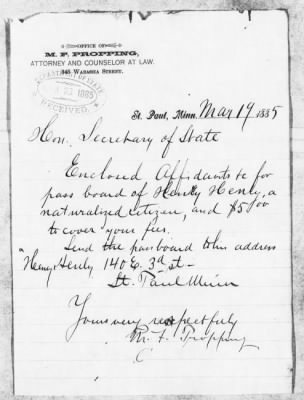 OFFICE OF
M. F. PROPPING,
ATTORNEY AND COUNSELOR AT LAW.
345 WABASHA STREET.
DEPARTMENT OF STATE
23 1885
RECEIVED.
St. Paul, Minn. Mar 19 1885
Hon. Secretary of State
Enclosed Affidants &c for
pass board of Henry Henly, a
naturalized citizen, and $5 00
to cover your fees.
Send the passboard to his address
"Henry Henly 140 E. 3d st —
St. Paul Minn
Yours very respectfuly
M. F. Propping